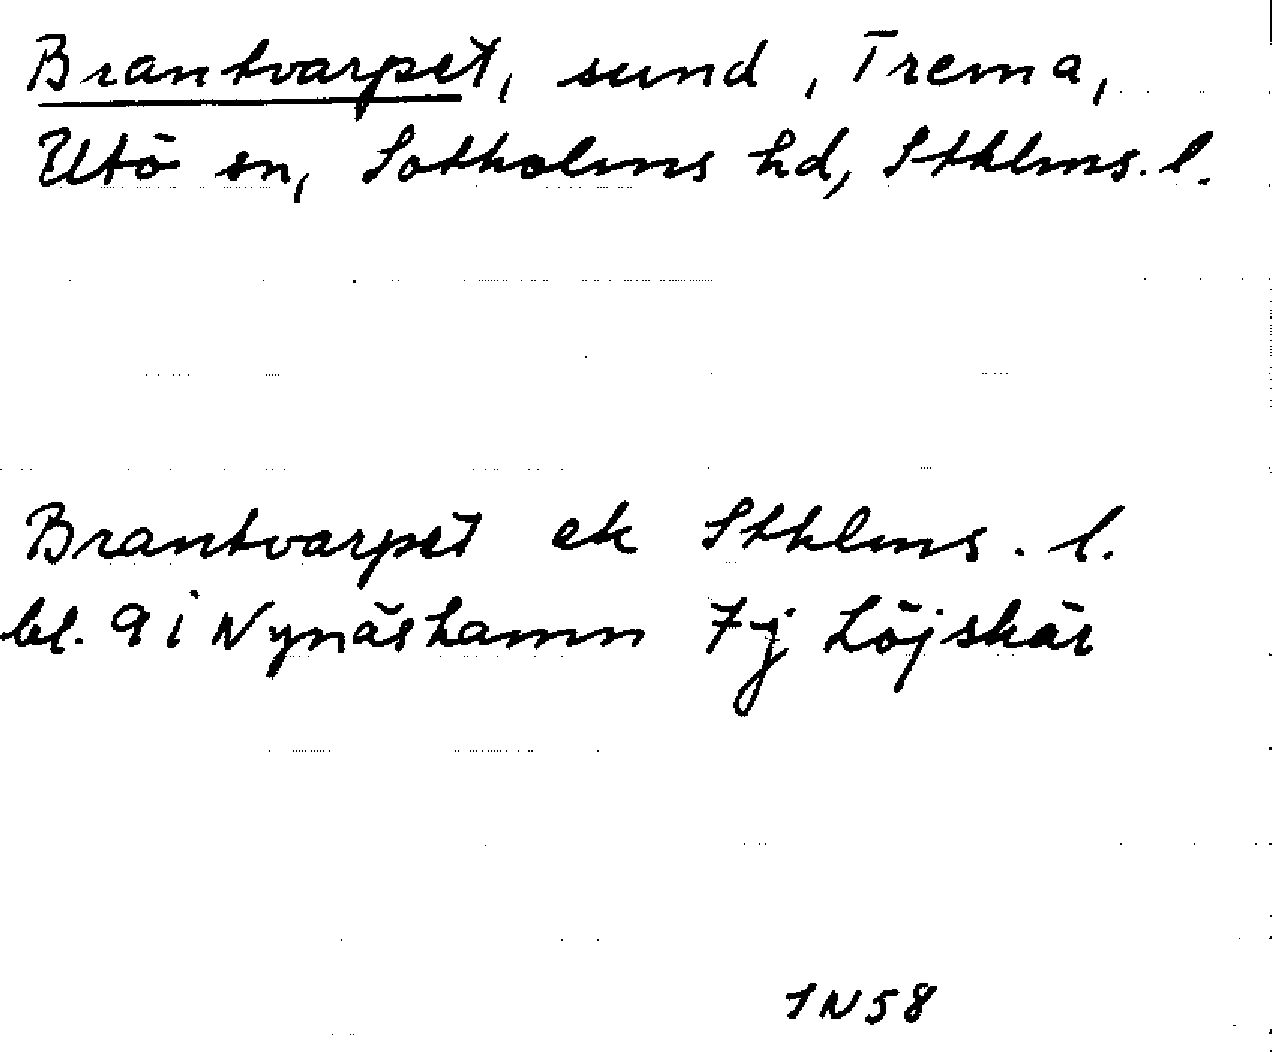 Brantvarpet, sund, Trema,
Utö sn, Sotholms hd, Sthlms. l.
Brantvarpet ek Sthlms. l.
bl. 9 i Nynäshamn 7j Löjskär
1N58